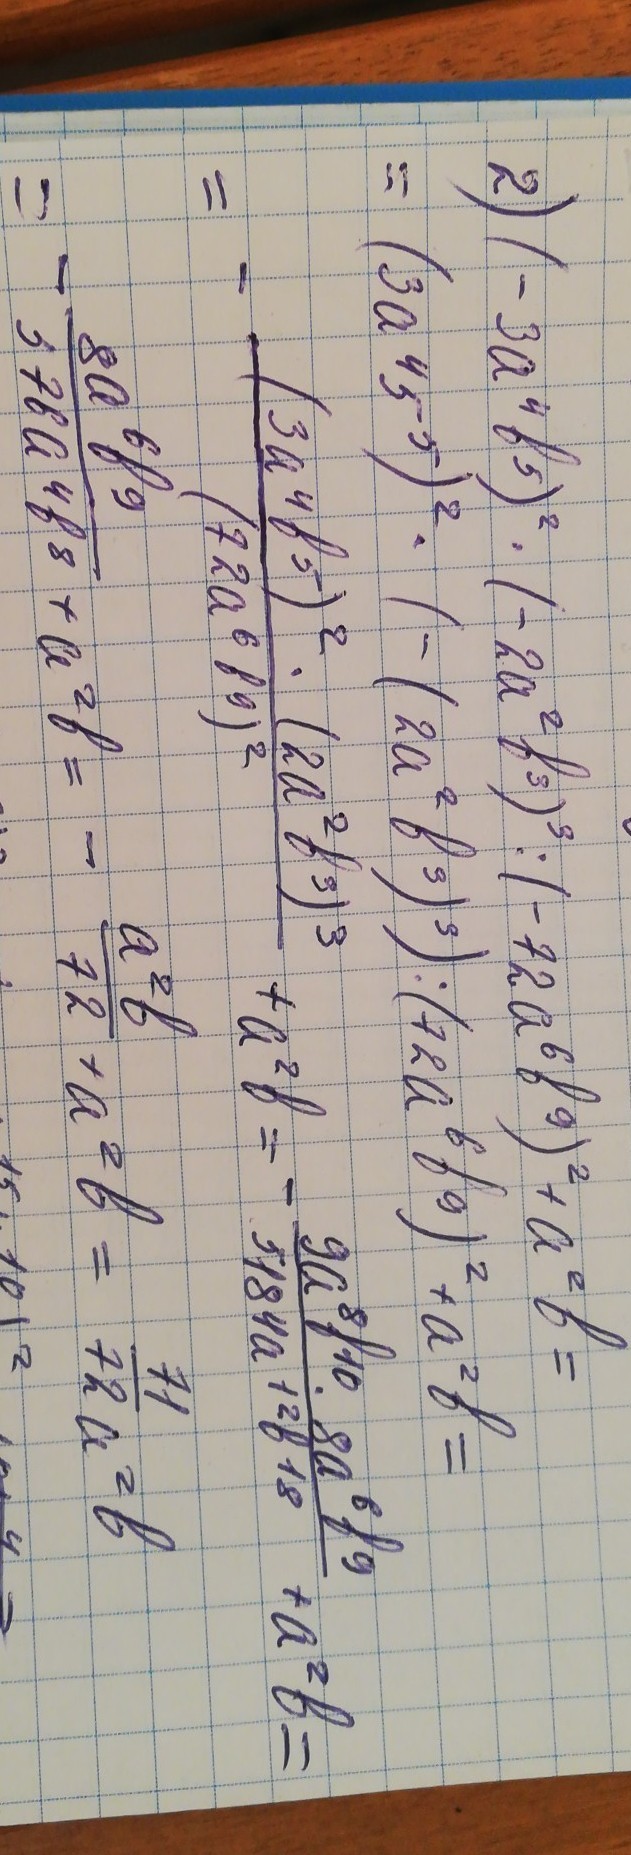 2) (-3a⁴b⁵)² · (-2a²b³)³ : (-72a⁶b⁹)² + a²b =
= (3a⁴5⁵)² · (-(2a²b³)³) : (72a⁶b⁹)² + a²b =
= - (3a⁴b⁵)² · (2a²b³)³ / (72a⁶b⁹)² + a²b = - 9a⁸b¹⁰ · 8a⁶b⁹ / 5184a¹²b¹⁸ + a²b =
= - 8a⁶b⁹ / 576a⁴b⁸ + a²b = - a²b / 72 + a²b = 71/72 a²b